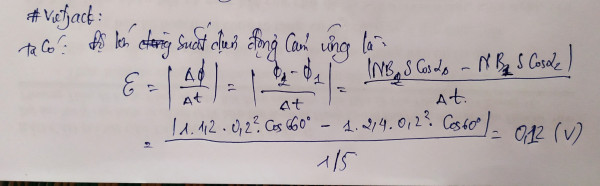 # Vietjack:
ta có: Độ lớn suất điện động cảm ứng là:
ε = |ΔΦ/Δt| = |Φ₂ - Φ₁/Δt| = |NB₂S cosα₂ - NB₁S cosα₂|/Δt.
= |1.1,2.0,2². Cos60° - 1.2,4.0,2². Cos60°|/1/5 = 0,12 (V)